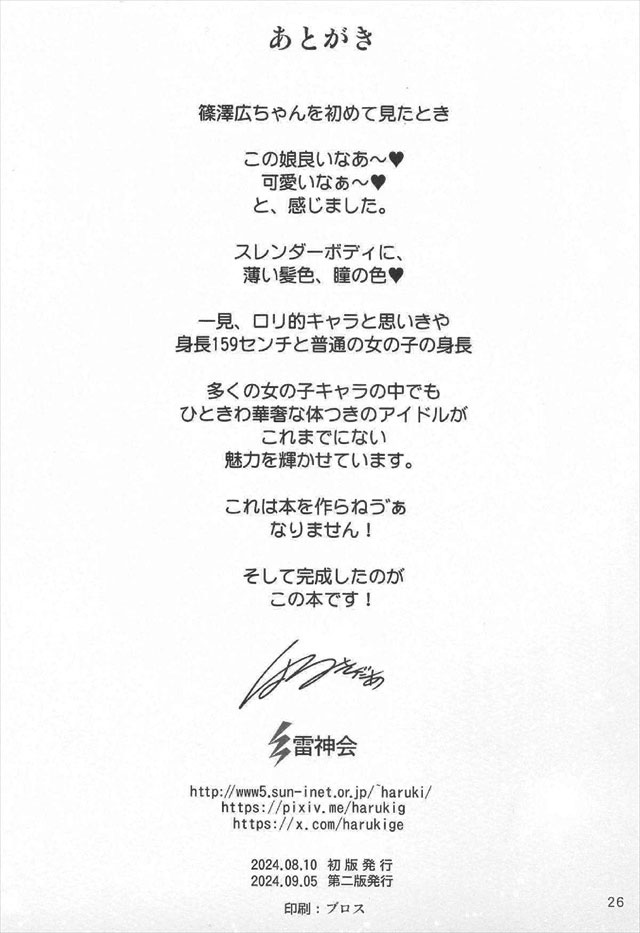 あとがき
篠澤広ちゃんを初めて見たとき
この娘良いなあ～♥
可愛いなぁ～♥
と、感じました。
スレンダーボディに、
薄い髪色、瞳の色♥
一見、ロリ的キャラと思いきや
身長159センチと普通の女の子の身長
多くの女の子キャラの中でも
ひときわ華奢な体つきのアイドルが
これまでにない
魅力を輝かせています。
これは本を作らねゔぁ
なりません！
そして完成したのが
この本です！
雷神会
http://www5.sun-inet.or.jp/~haruki/
https://pixiv.me/harukig
https://x.com/harukige
2024.08.10 初版発行
2024.09.05 第二版発行
印刷：ブロス
26